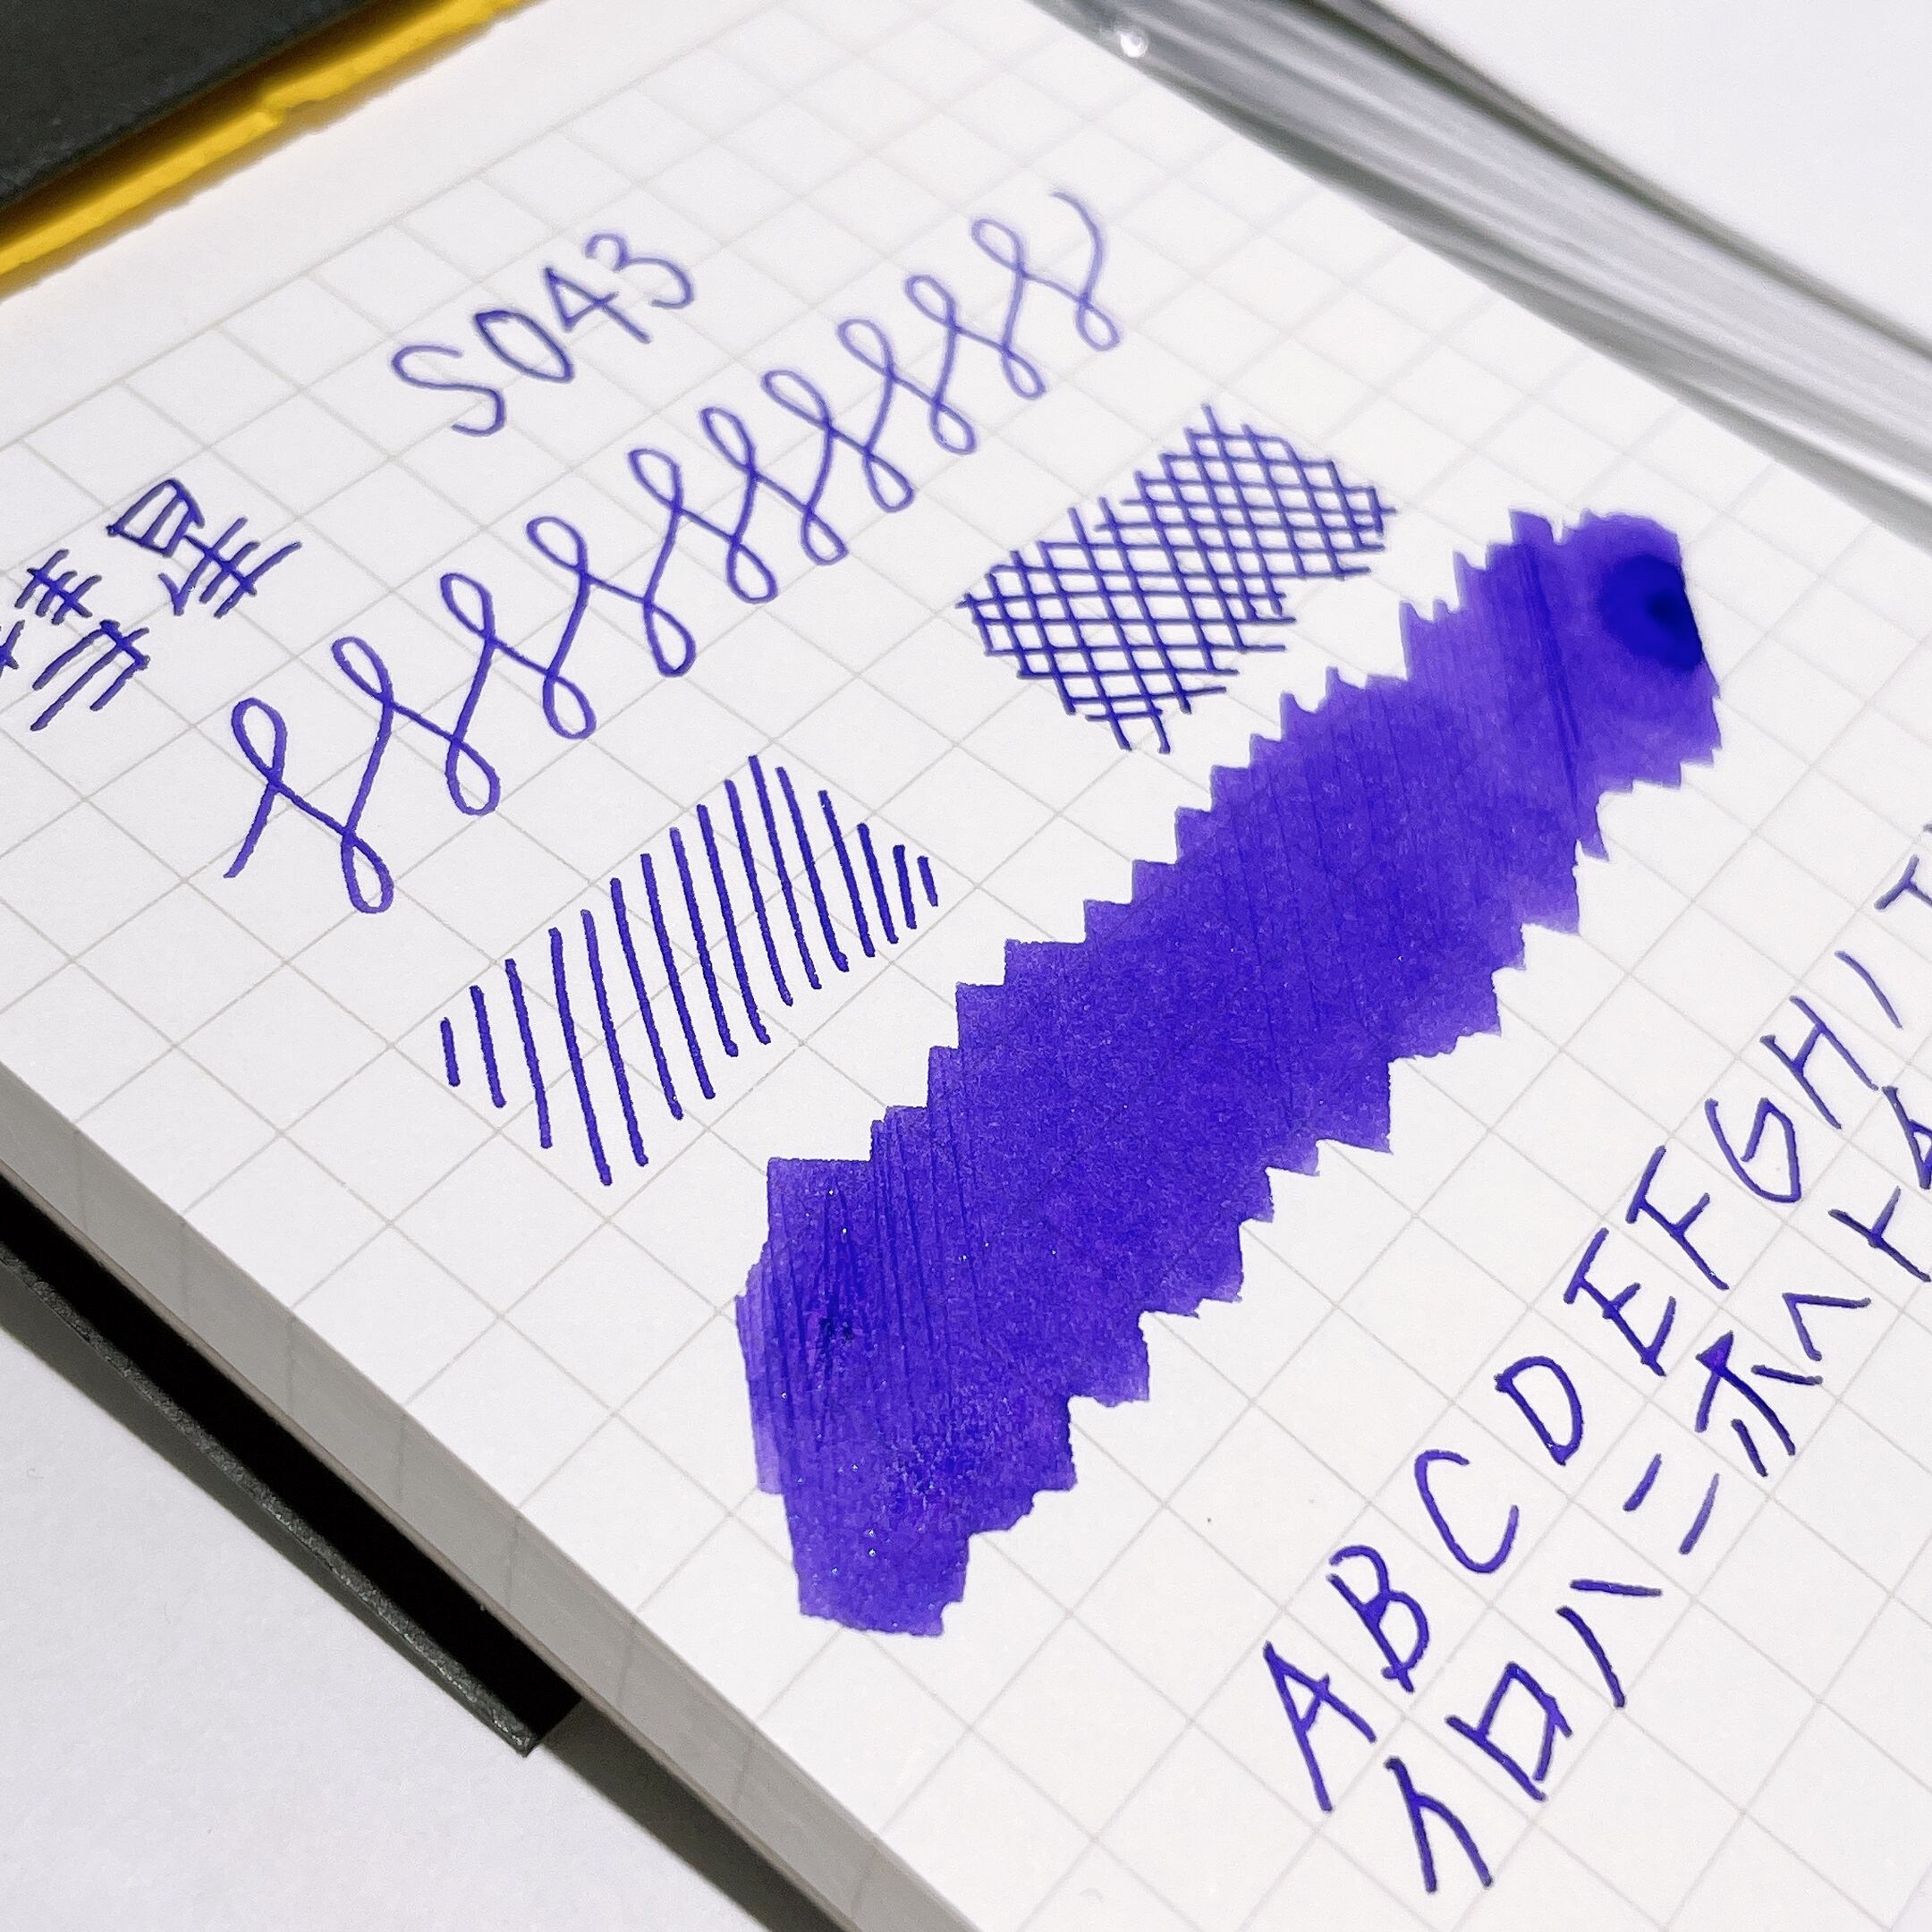 彗星 S043
A B C D E F G H I
イ ロ ハ ニ ホ ヘ ト